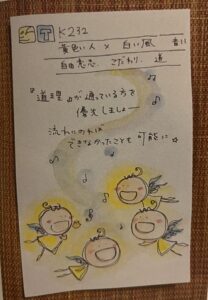 K232
黄色い人 × 白い風 青い
自由意志 こだわり 道
『道理』が通っている方を
優先しましょー
流れにのれば
できなかったことも 可能に☆